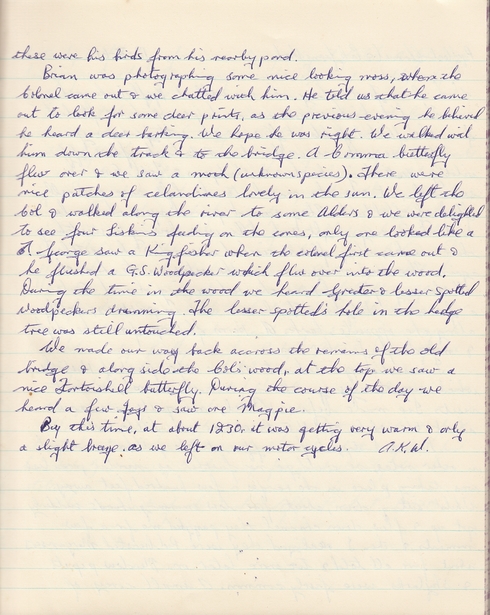 these were his birds from his nearby pond.
Brian was photographing some nice looking moss, when the
Colonel came out & we chatted with him. He told us that he came
out to look for some deer prints, as the previous evening he believed
he heard a deer barking. We hope he was right. We walked with
him down the track & to the bridge. A Comma butterfly
flew over & we saw a moth (unknown species). There were
nice patches of celandines lovely in the sun. We left the
Col & walked along the river to some Alders & we were delighted
to see four Siskins feeding on the cones, only one looked like a
♂. George saw a Kingfisher when the colonel first came out &
he flushed a G.S. Woodpecker which flew over into the wood.
During the time in the wood we heard Greater & lesser Spotted
Woodpeckers drumming. The lesser spotted's hole in the hedge
tree was still untouched.
We made our way back accross the remains of the old
bridge & along side the Col's wood, at the top we saw a
nice Tortoishell butterfly. During the course of the day we
heard a few Jays & saw one Magpie.
By this time, at about 1230, it was getting very warm & only
a slight breeze, as we left on our motor cycles. A.K.W.